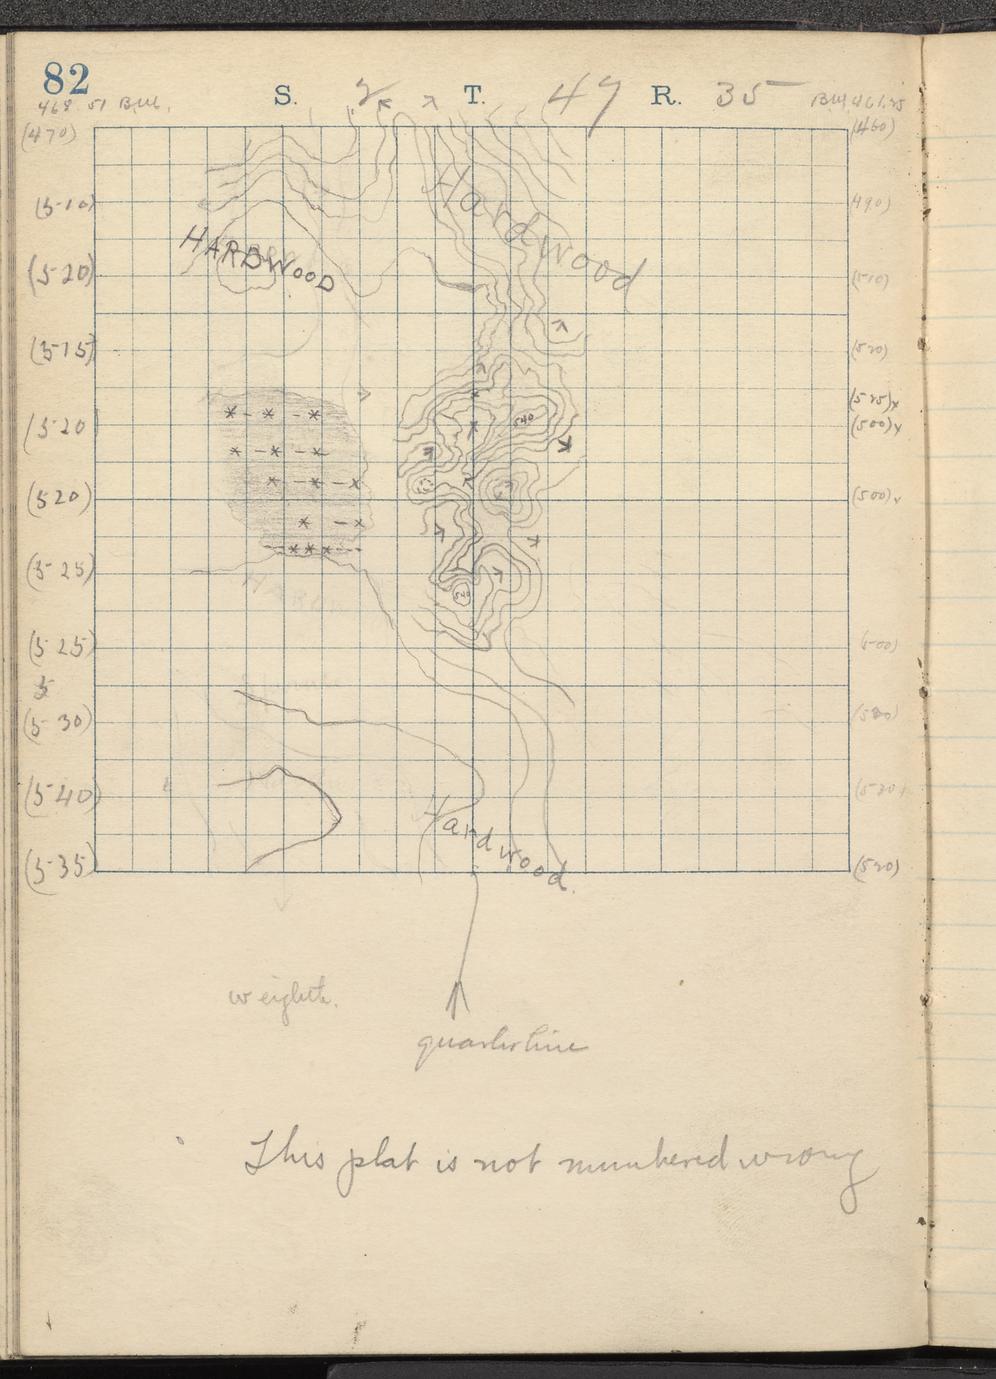 82
S. 2 T. 47 R. 35
(470)
(460)
(510)
490)
Hardwood
HARDWOOD
(520)
(510)
(515)
(520)
(525)x
(520
(500)x
540
(520)
(500)x
(525)
540
HARDW
(525)
(500)
5
(530)
(540)
Hardwood.
(535)
(520)
weighth.
quarterline
This plat is not numbered wrong